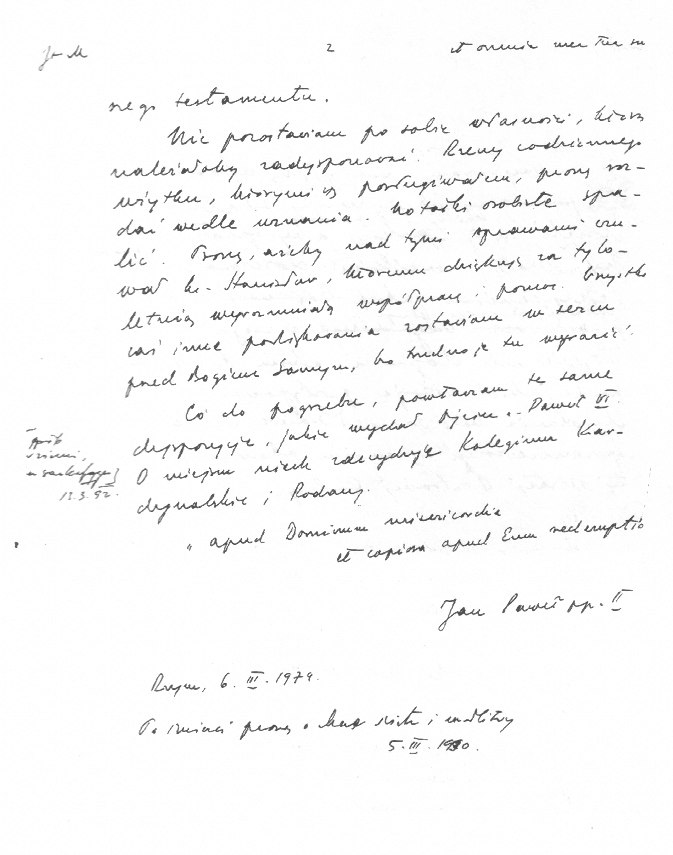 2
et omnia mea tua su
nego testamentu.
Nie pozostawiam po sobie własności, którą
należałoby zadysponować. Rzeczy codziennego
użytku, którymi się posługiwałem, proszę roz-
dać wedle uznania. Notatki osobiste spa-
lić. Proszę, ażeby nad tymi sprawami czu-
wał ks. Stanisław, któremu dziękuję za tylo-
letnią wyrozumiałą współpracę i pomoc. Wszystkie
zaś inne podziękowania zostawiam w sercu
przed Bogiem Samym, bo trudno je tu wyrazić.
Co do pogrzebu, powtarzam te same
dyspozycje, jakie wydał Ojciec św. Paweł VI.
O miejscu niech zdecyduje Kolegium Kar-
dynalskie i Rodacy.
13.3.92.
"apud Dominum misericordia
et copiosa apud Eum redemptio
Jan Paweł pp. II
Rzym, 6. III. 1979.
Po śmierci proszę o Msze święte i modlitwy
5. III. 1990.